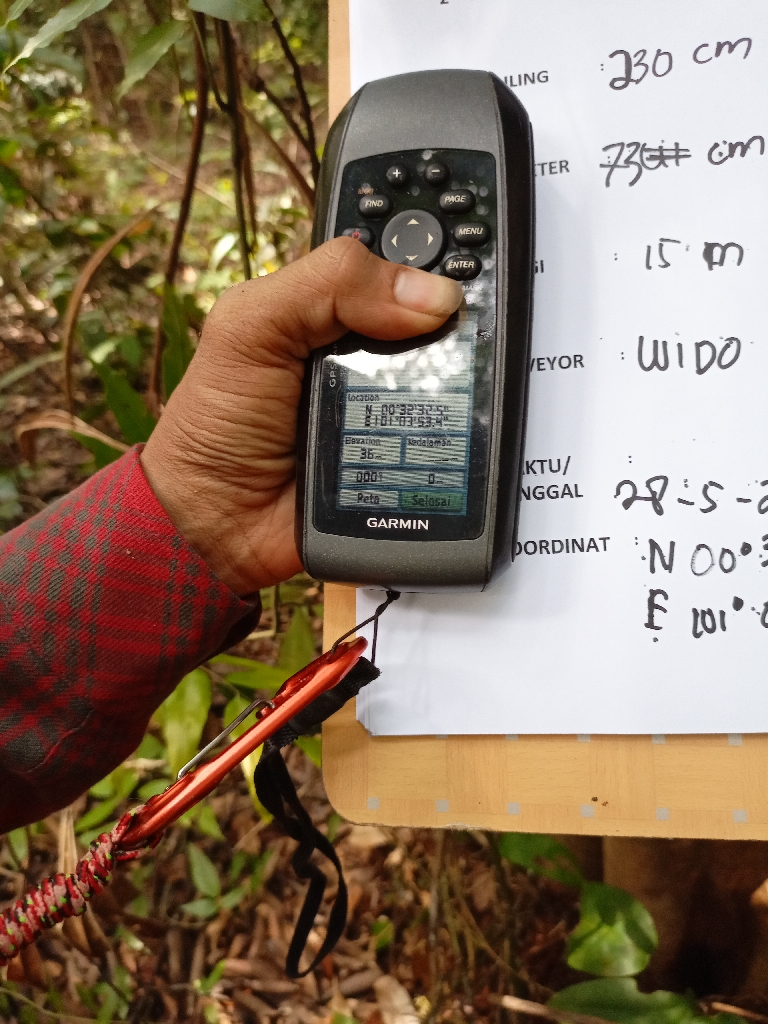 LING : 230 cm
TER cm
I : 15 m
VEYOR : WIDO
KTU/
NGGAL 28-5-2
OORDINAT : N 00°3
E 101°
FIND
PAGE
MENU
ENTER
MARK
GPS
Location
N 00°32'32.5"
E101°03'53.4"
Elevation Kedalaman
36
000
0
Peta Selesai
GARMIN